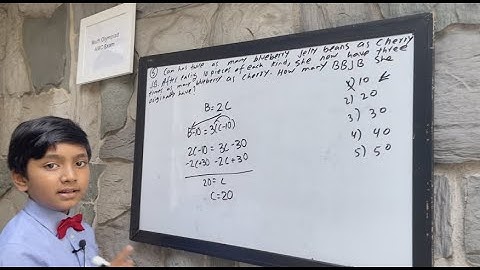 Math Olympiad
AMC Exam
⑤ Cari has twice as many blueberry jelly beans as Cherry
JB. After eating 10 pieces of each kind, she now have three
times as many blueberry as Cherry. How many BBJB She
originally have?
B=2C
B-10=3(C-10)
2C-10 = 3C-30
-2C+30 -2C+30
20=C
C=20
1) 10
2) 20
3) 30
4) 40
5) 50